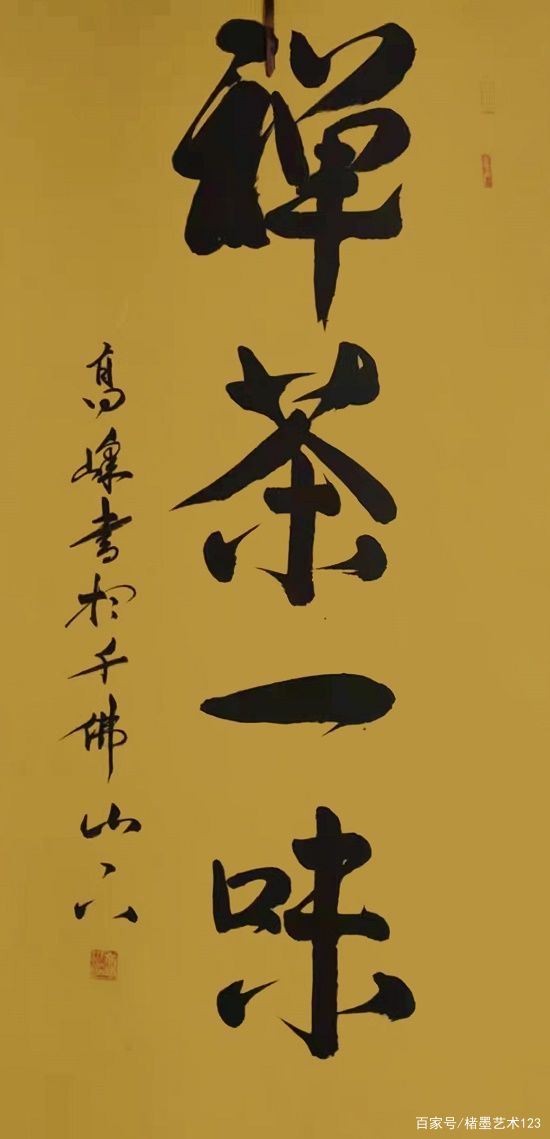 禅茶一味
高峰书於千佛山下
百家号/楮墨艺术123